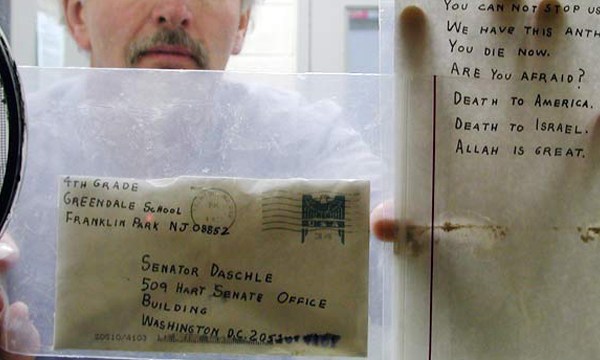 4TH GRADE
GREENDALE SCHOOL
FRANKLIN PARK NJ 08852
SENATOR DASCHLE
509 HART SENATE OFFICE
BUILDING
WASHINGTON D.C. 2051
YOU CAN NOT STOP US
WE HAVE THIS ANTH
YOU DIE NOW.
ARE YOU AFRAID?
DEATH TO AMERICA.
DEATH TO ISRAEL.
ALLAH IS GREAT.